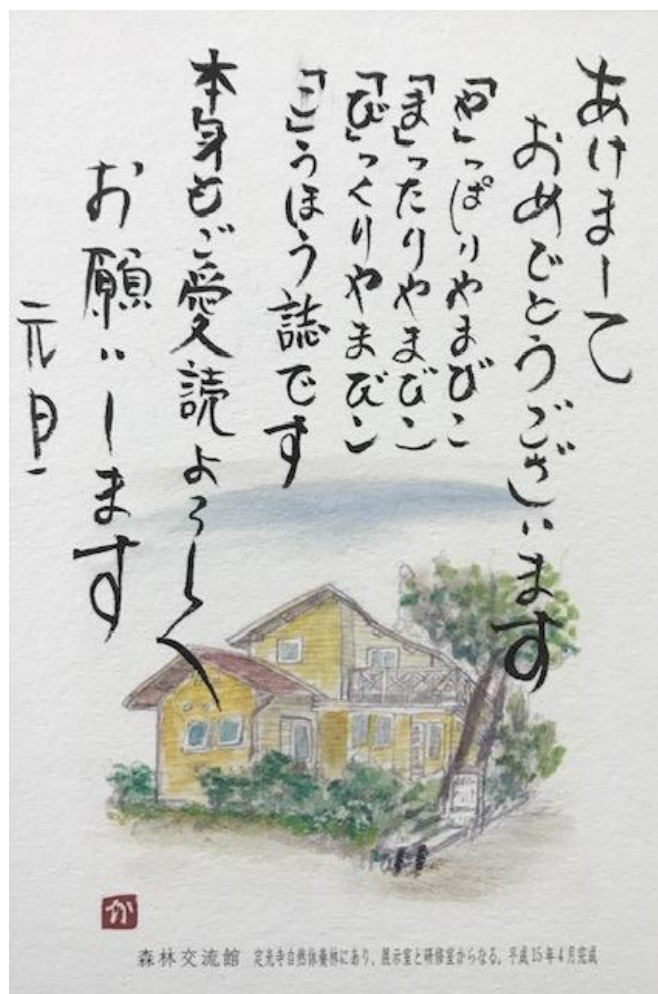 あけまして
おめでとうございます
「や」っぱりやまびこ
「ま」ったりやまびこ
「び」っくりやまびこ
「こ」うほう誌です
本年もご愛読よろしく
お願いします
元旦
か
森林交流館 定光寺自然休養林にあり、展示室と研修室からなる。平成15年4月完成